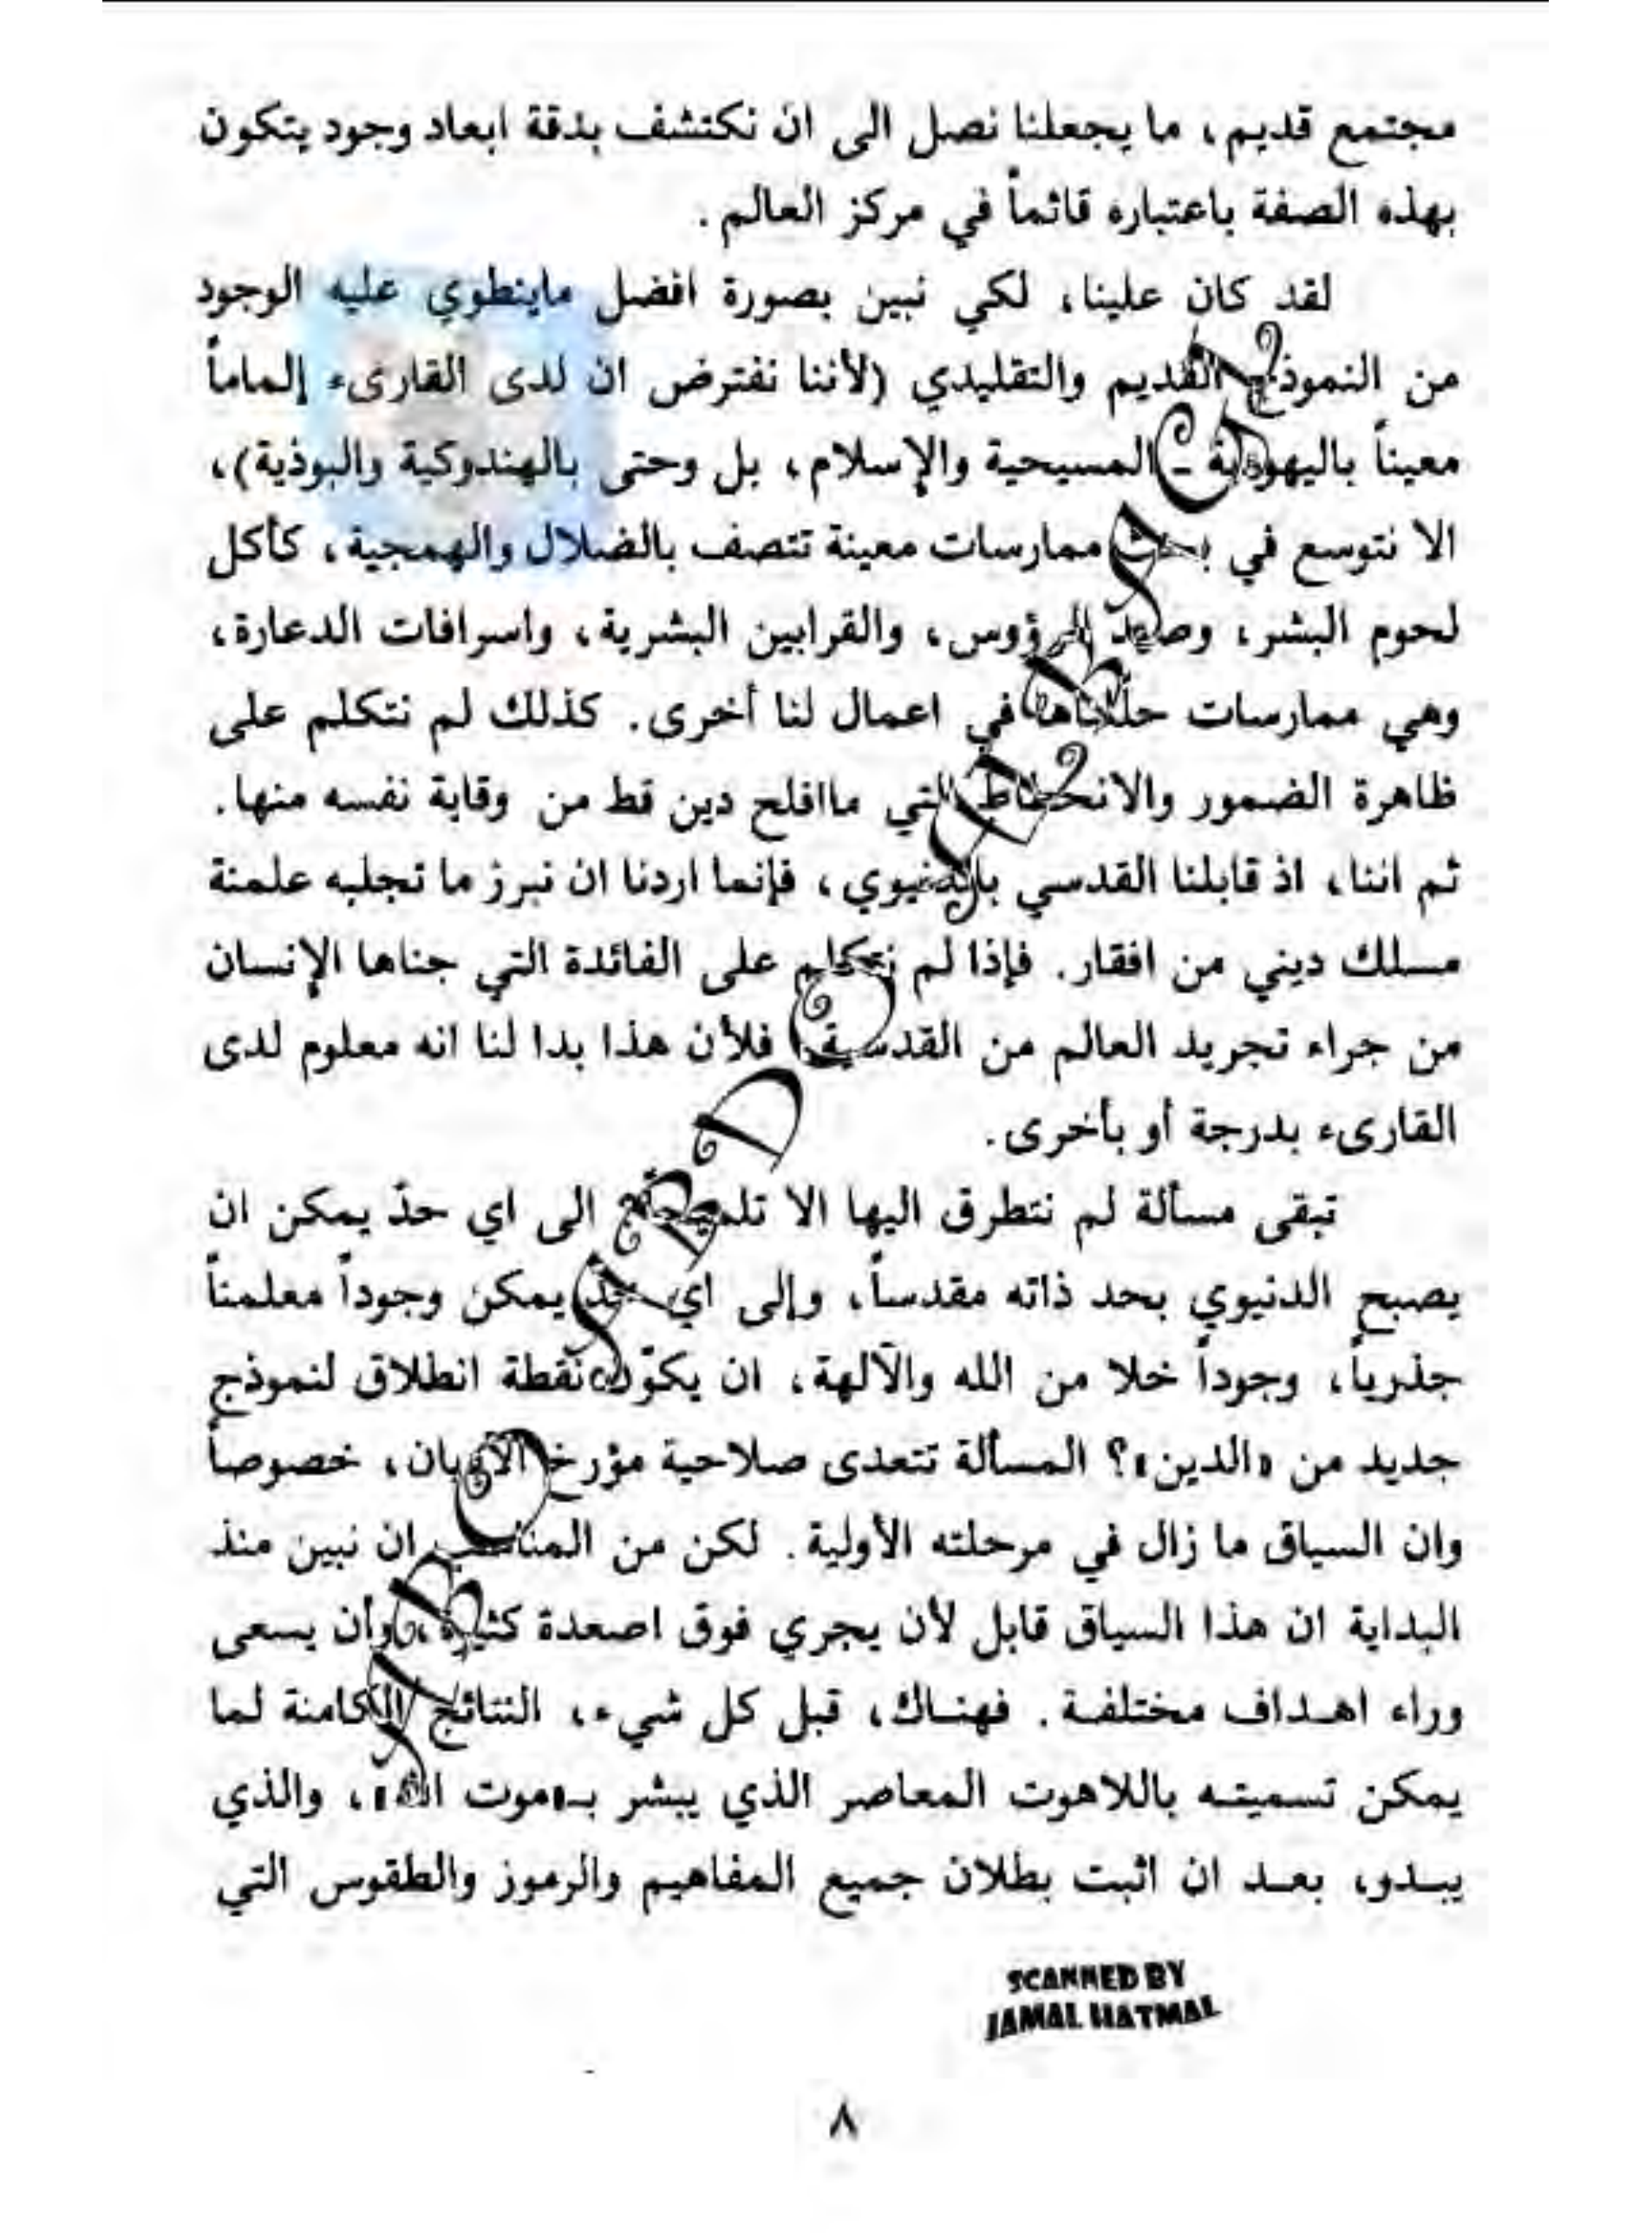 مجتمع قديم، ما يجعلنا نصل الى ان نكتشف بدقة ابعاد وجود يتكون
بهذه الصفة باعتباره قائماً في مركز العالم.
لقد كان علينا، لكي نبين بصورة افضل ماينطوي عليه الوجود
من النموذج القديم والتقليدي (لأننا نفترض ان لدى القارىء إلماماً
معيناً باليهودية ـ المسيحية والإسلام، بل وحتى بالهندوكية والبوذية)،
الا نتوسع في بحث ممارسات معينة تتصف بالضلال والهمجية، كأكل
لحوم البشر، وصيد الرؤوس، والقرابين البشرية، واسرافات الدعارة،
وهي ممارسات حللناها في اعمال لنا أخرى. كذلك لم نتكلم على
ظاهرة الضمور والانحطاط التي ماافلح دين قط من وقاية نفسه منها.
ثم اننا، اذ قابلنا القدسي بالدنيوي، فإنما اردنا ان نبرز ما تجلبه علمنة
مسلك ديني من افقار. فإذا لم نتكلم على الفائدة التي جناها الإنسان
من جراء تجريد العالم من القدسية، فلأن هذا بدا لنا انه معلوم لدى
القارىء بدرجة أو بأخرى.
تبقى مسألة لم نتطرق اليها الا الى اي حدّ يمكن ان
يصبح الدنيوي بحد ذاته مقدساً، وإلى اي حدّ يمكن وجوداً معلمناً
جذرياً، وجوداً خلا من الله والآلهة، ان يكوّن نقطة انطلاق لنموذج
جديد من «الدين»؟ المسألة تتعدى صلاحية مؤرخ الأديان، خصوصاً
وان السياق ما زال في مرحلته الأولية. لكن من المناسب ان نبين منذ
البداية ان هذا السياق قابل لأن يجري فوق اصعدة كثيرة، وأن يسعى
وراء اهـداف مختلفـة. فهنـاك، قبل كل شيء، النتائج الكامنة لما
يمكن تسميتـه باللاهوت المعاصر الذي يبشر بـ«موت الله»، والذي
يبـدو، بعـد ان اثبت بطلان جميع المفاهيم والرموز والطقوس التي
SCANNED BY
JAMAL HATMAL
٨